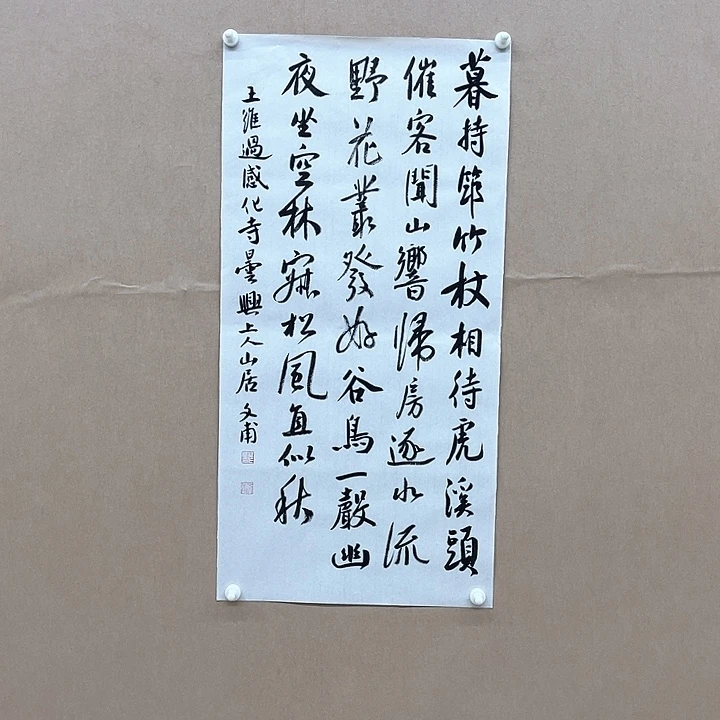 暮持筇竹杖相待虎溪頭
催客聞山響歸房逐水流
野花叢發好谷鳥一聲幽
夜坐空林寂松風直似秋
王維過感化寺曇興上人山居 文甫